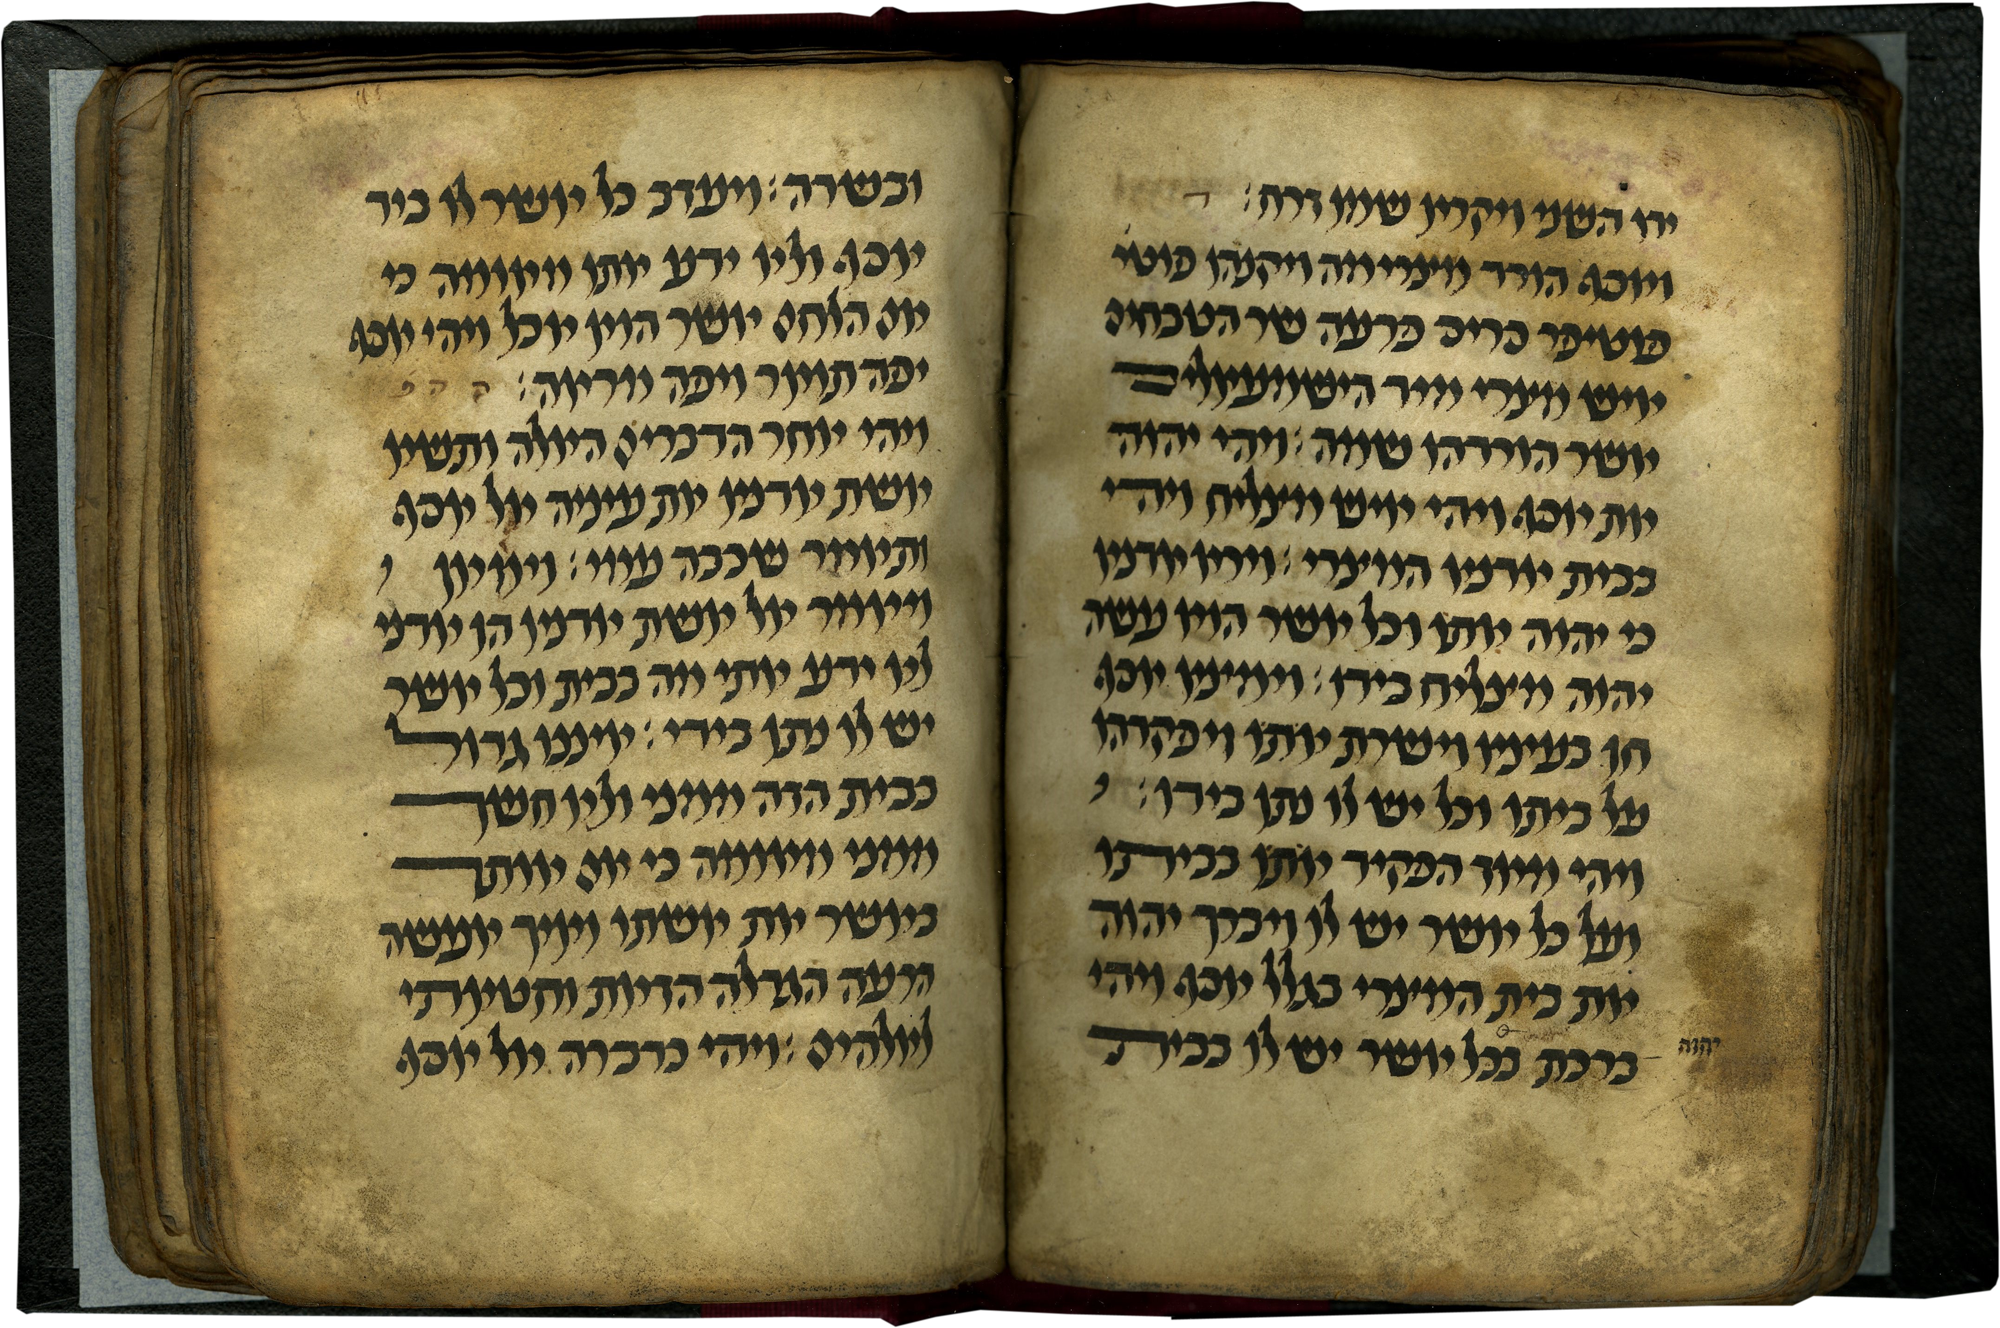 ידו השני ויקרא שמו זרח:
ויוסף הורד מצרימה ויקנהו פוטי
פוטיפר סריס פרעה שר הטבחים
איש מצרי מיד הישמעאלים
אשר הורדהו שמה: ויהי יהוה
את יוסף ויהי איש מצליח ויהי
בבית אדניו המצרי: וירא אדניו
כי יהוה אתו וכל אשר הוא עשה
יהוה מצליח בידו: וימצא יוסף
חן בעיניו וישרת אתו ויפקדהו
על ביתו וכל יש לו נתן בידו: ו
ויהי מאז הפקיד אתו בביתו
ועל כל אשר יש לו ויברך יהוה
את בית המצרי בגלל יוסף ויהי
ברכת בכל אשר יש לו בבית
יהוה
ובשדה: ויעזב כל אשר לו ביד
יוסף ולא ידע אתו מאומה כי
אם הלחם אשר הוא אכל ויהי יוסף
יפה תאר ויפה מראה:
ויהי אחר הדברים האלה ותשא
אשת אדניו את עיניה אל יוסף
ותאמר שכבה עמי: וימאן ו
ויאמר אל אשת אדניו הן אדני
לא ידע אתי מה בבית וכל אשר
יש לו נתן בידי: איננו גדול
בבית הזה ממני ולא חשך
ממני מאומה כי אם אותך
באשר את אשתו ואיך אעשה
הרעה הגדלה הזאת וחטאתי
לאלהים: ויהי כדברה אל יוסף